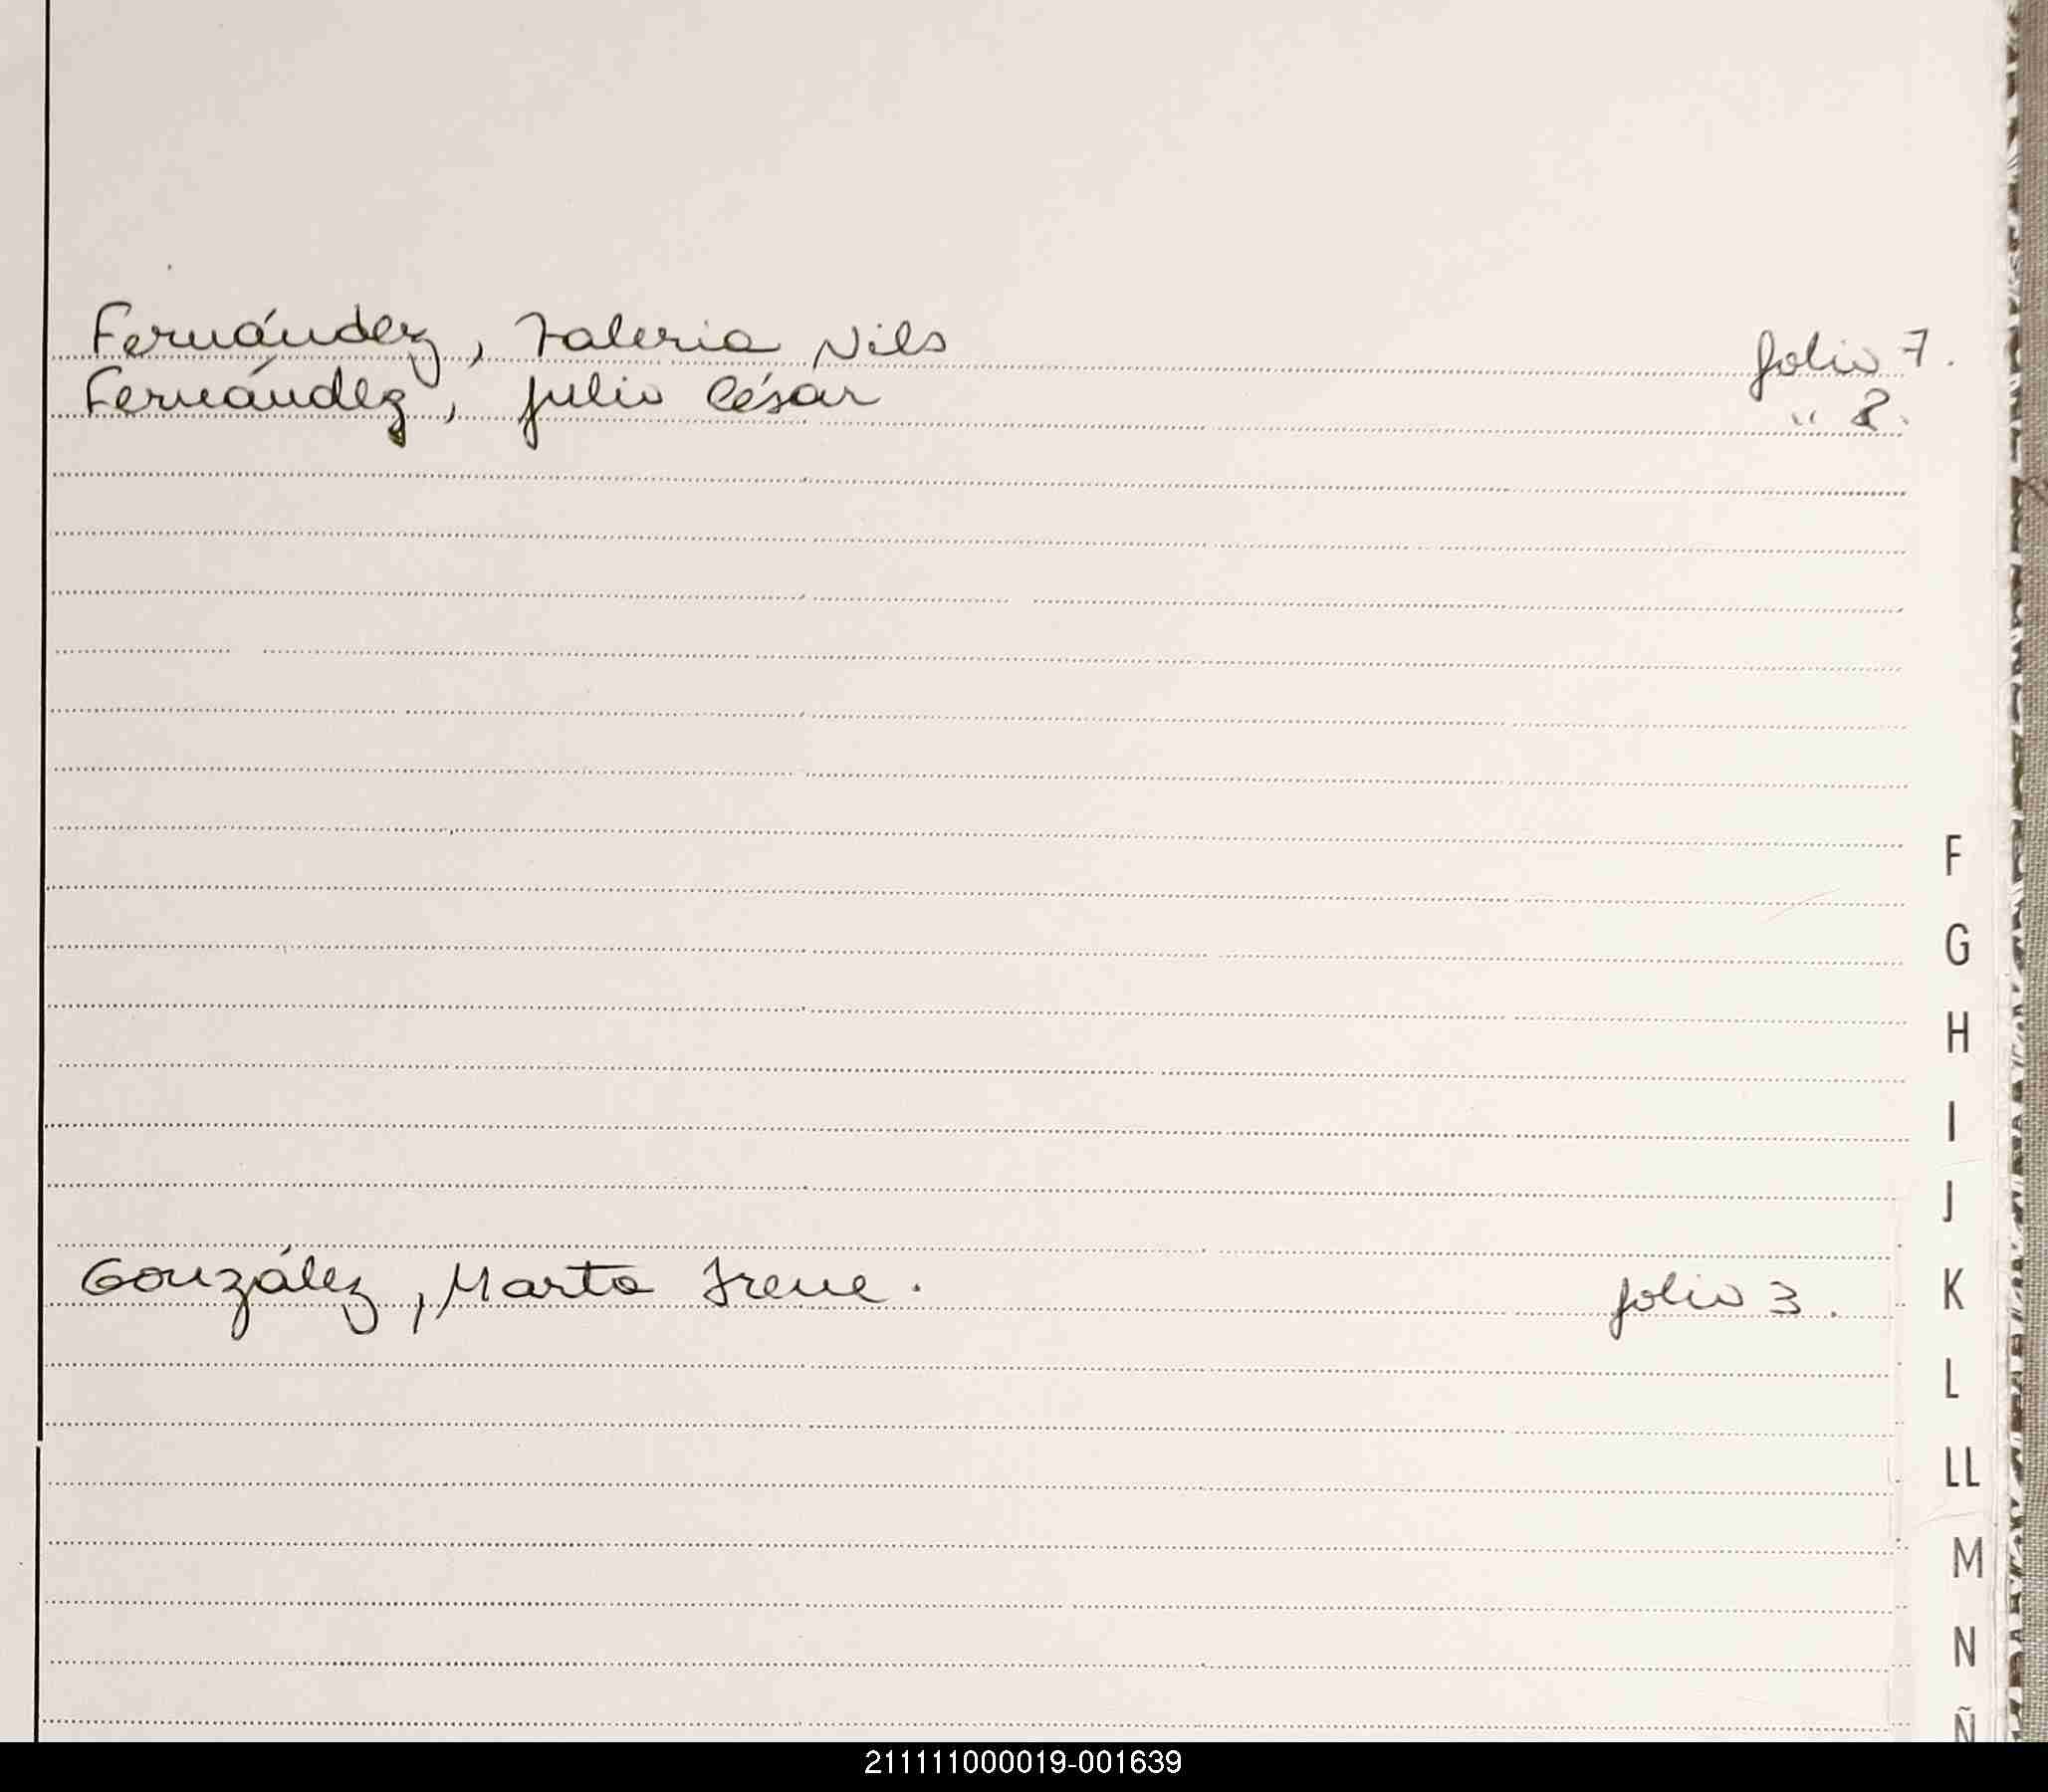 Fernández, Valeria Nils folio 7.
Fernández, Julio César " 8.
F
G
H
I
J
González, Marta Irene. folio 3.
K
L
LL
M
N
Ñ
211111000019-001639